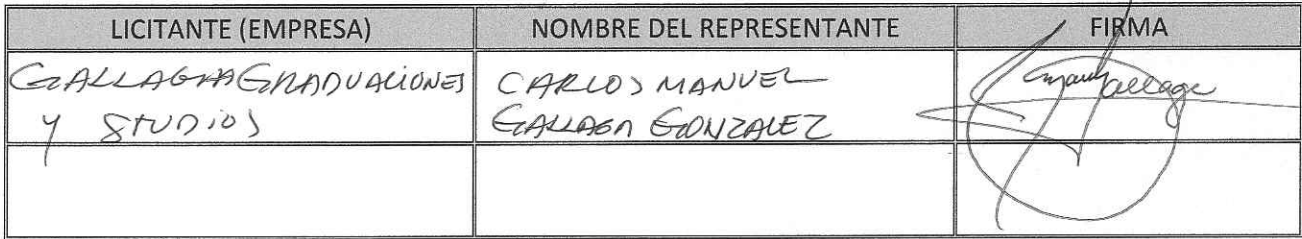 LICITANTE (EMPRESA) NOMBRE DEL REPRESENTANTE FIRMA
GALLAGA GRADUACIONES CARLOS MANUEL
Y STUDIOS GALLAGA GONZALEZ